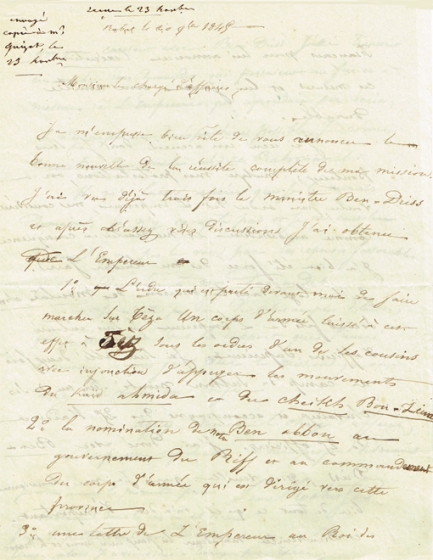 reçue le 23 novbre
envoyé
copie à Mr
Guizot le
23 novbre
Rabat le 20 9bre 1845
Monsieur le chargé d'affaires,
Je m'empresse bien vite de vous annoncer la
bonne nouvelle de la réussite complète de ma mission
J'ai vu déjà trois fois le ministre Ben-Driss
et après d'assez vives discussions j'ai obtenu
que L'Empereur
1o L'ordre qui est parti devant moi de faire
marcher sur Teza un corps d'armée laissé à cet
effet à Fez sous les ordres d'un de ses cousins
avec injonction d'appuyer les mouvements
du kaïd ahmida et du cheikh Bou-Zian
2o la nomination de Ben abbou au
gouvernement du Riff et au commandement
du corps d'armée qui est dirigé vers cette
province
3o une lettre de L'Empereur au Roi des